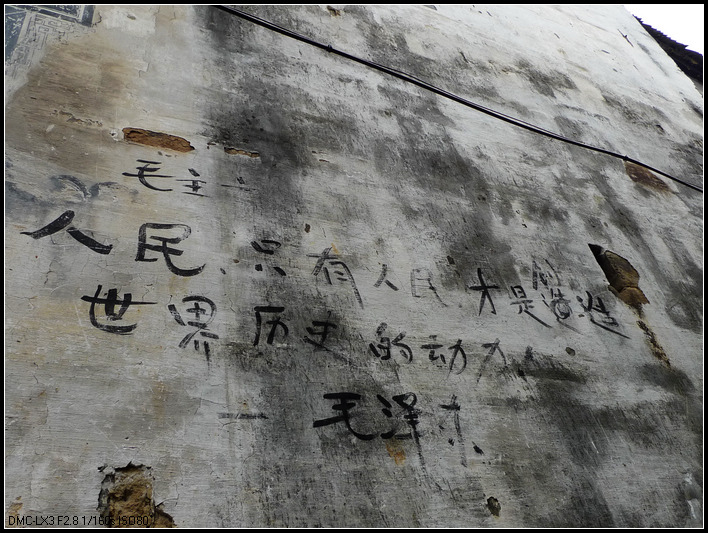 毛主
人民,只有人民才是创造
世界历史的动力.
— 毛泽东
DMC-LX3 F2.8 1/160s ISO80